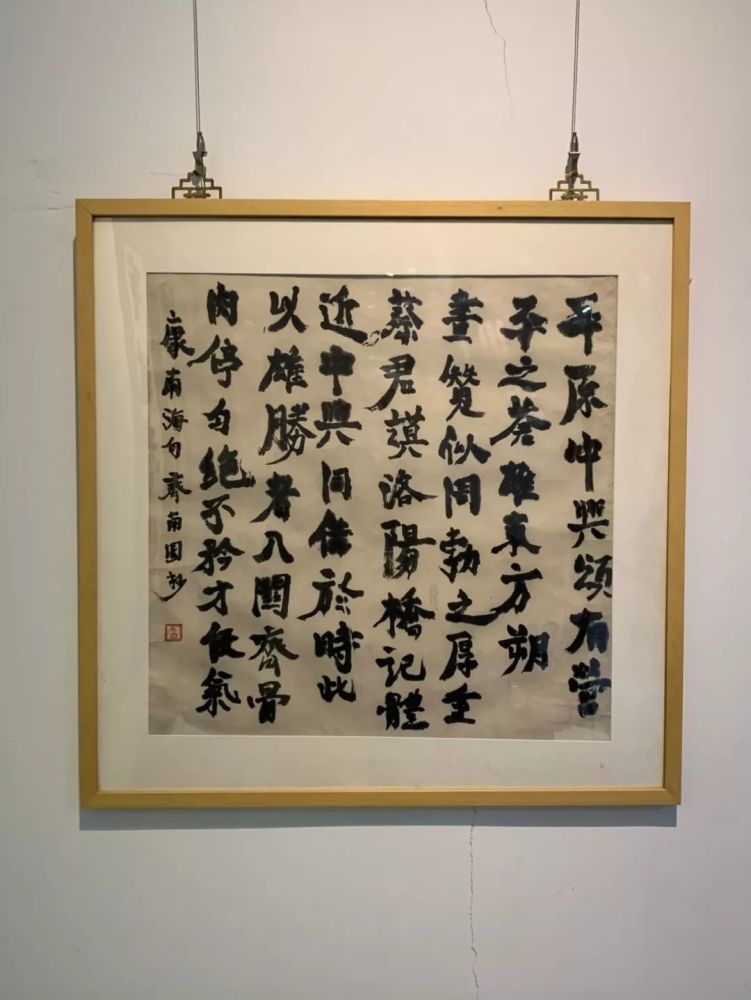 平原中興頌有營
平之蒼雄東方朔
畫贊似周勃之厚重
蔡君謨洛陽橋記體
近中興同儕於時此
以雄勝者八關齋骨
肉停匀絕不矜才使氣
康南海句